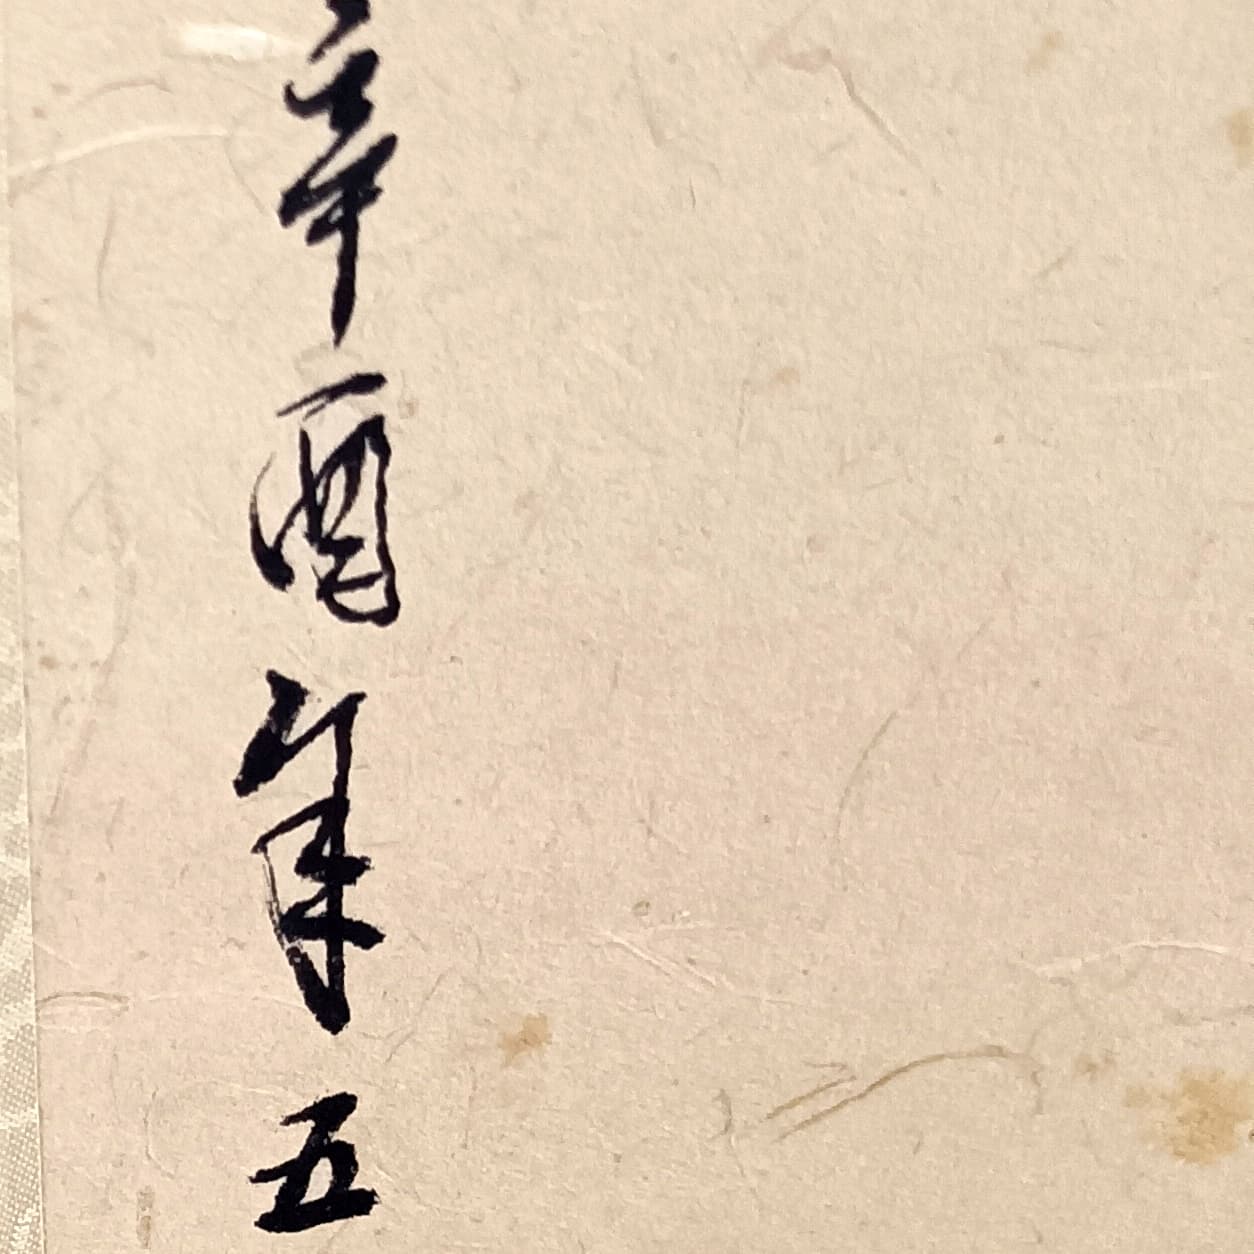 辛酉年五